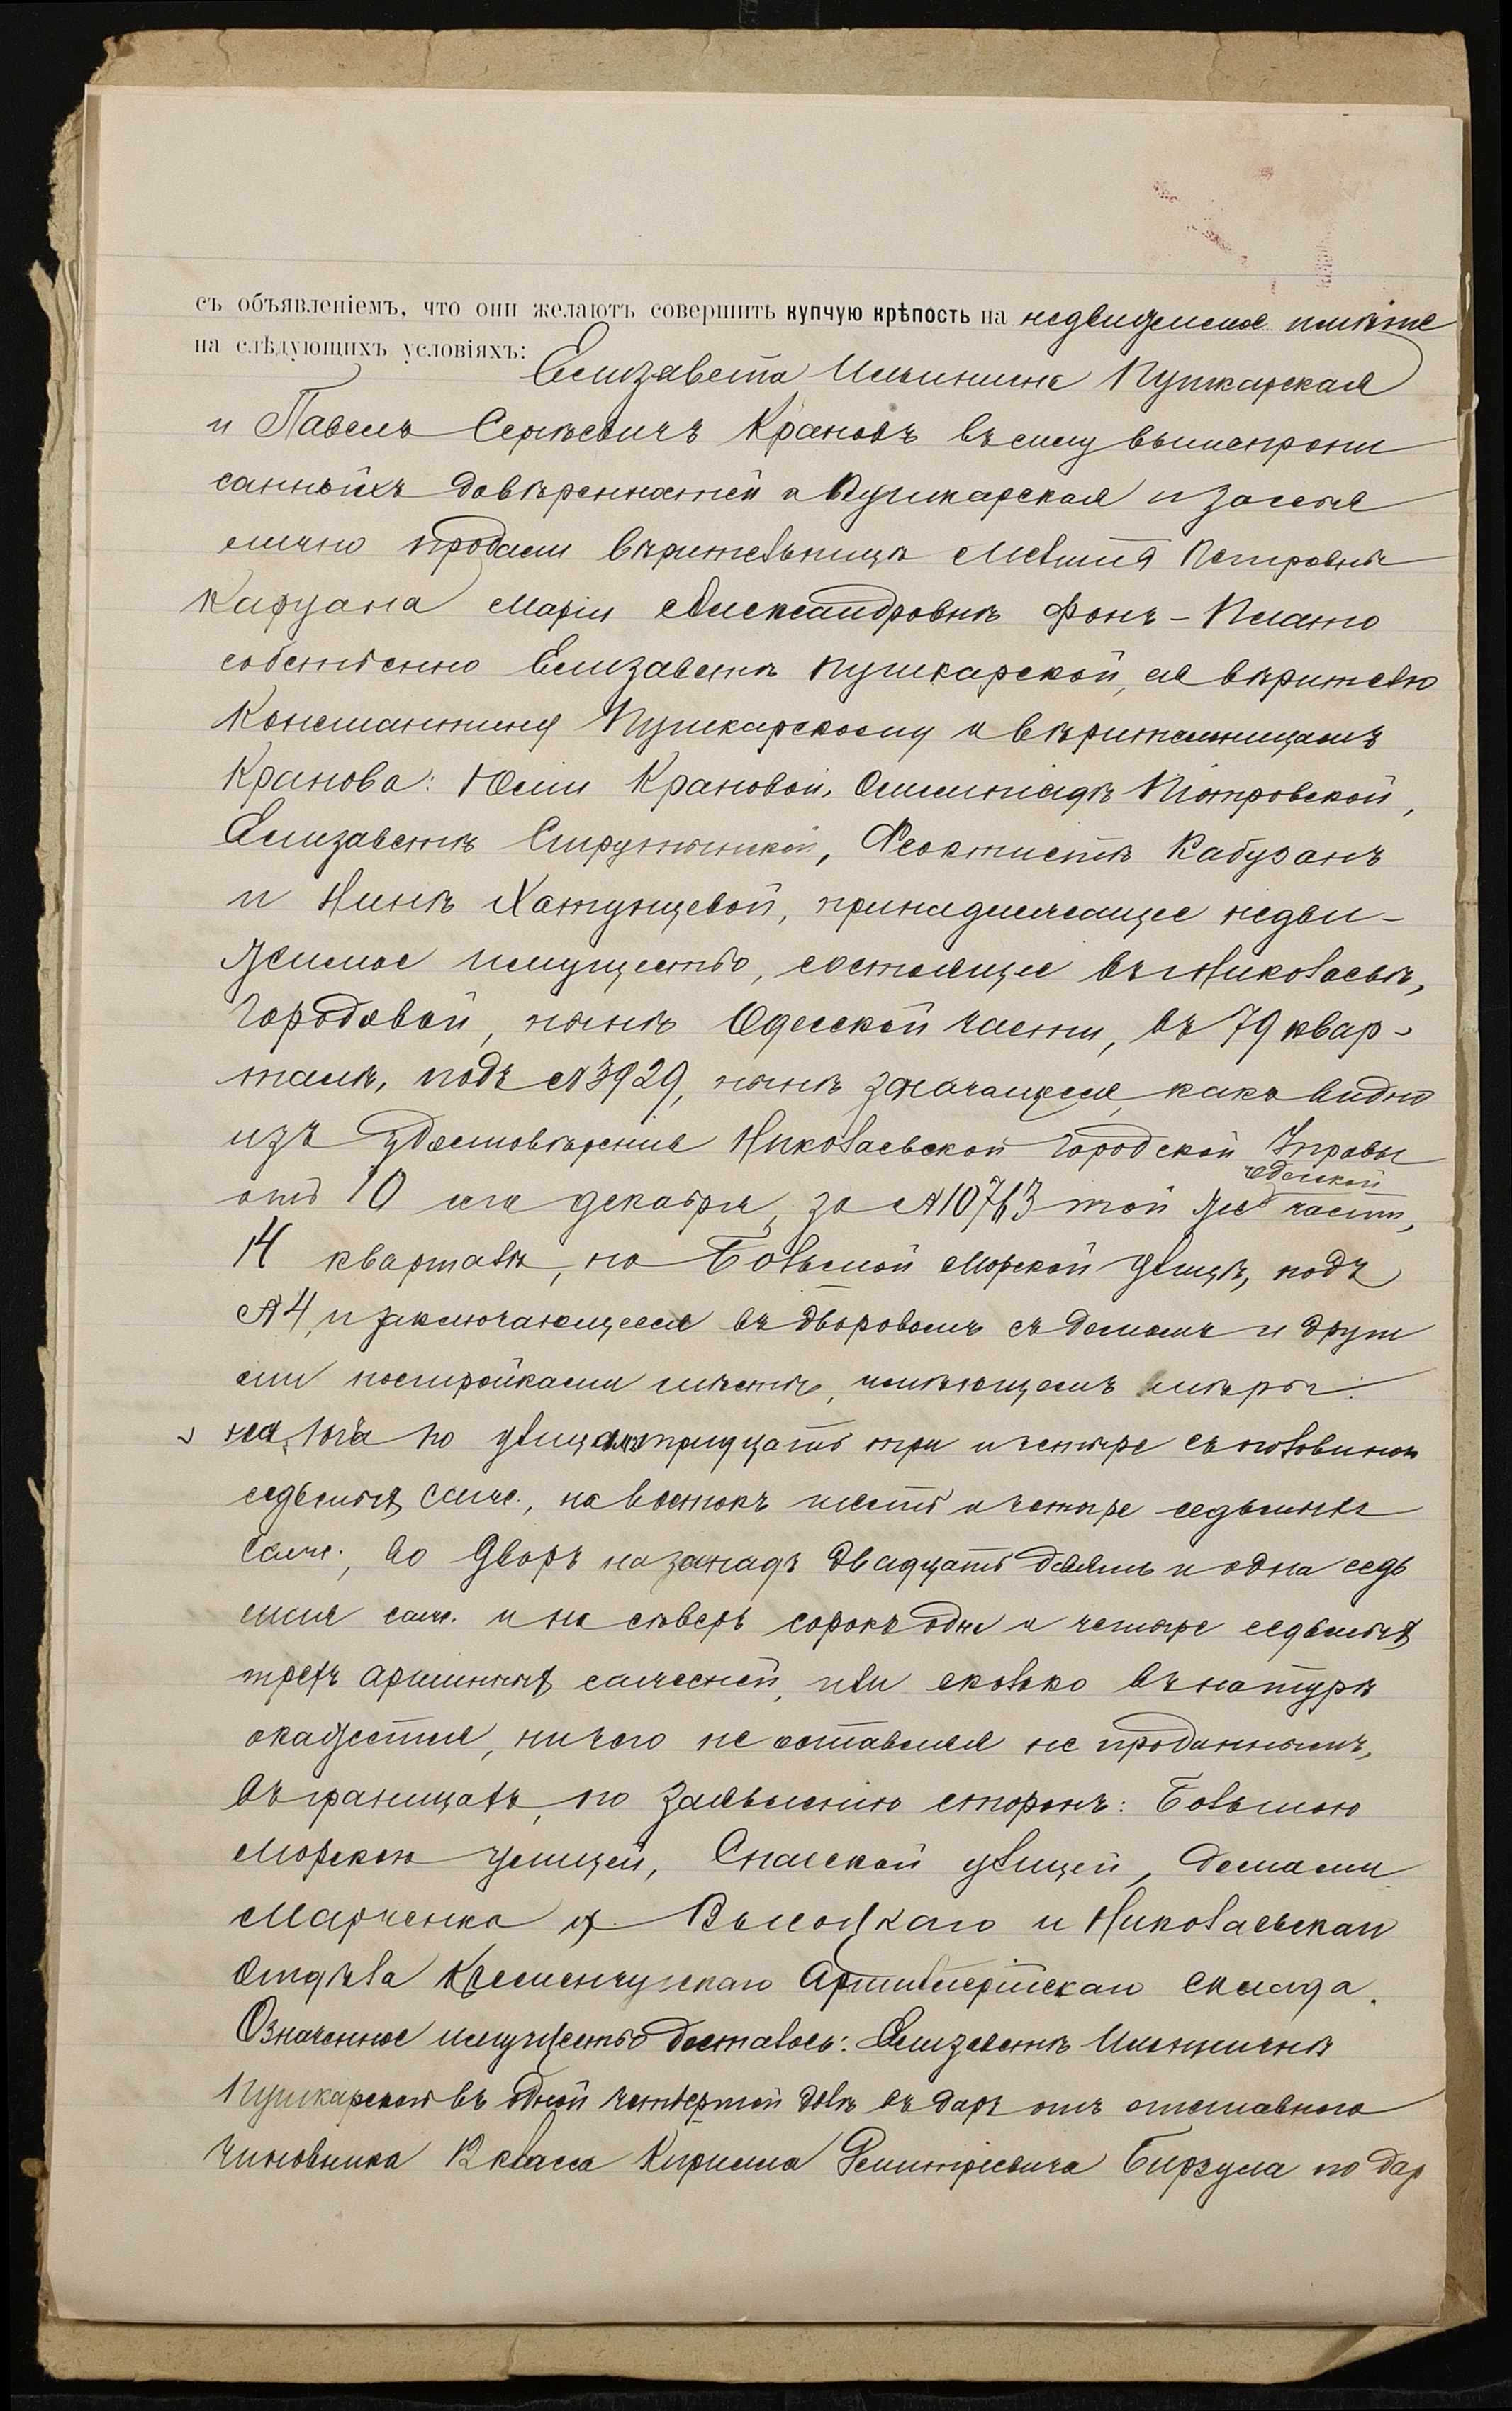 съ объявленіемъ, что они желаютъ совершить купчую крѣпость на недвижимое имѣніе
на слѣдующихъ условіяхъ:
Елизавета Ильинична Пушкарская
и Павелъ Сергѣевичъ Крановъ въ силу вышепропи
санныхъ довѣренностей а Пушкарская и за себя
лично продали вѣрительницѣ Петровны
Маріи Александровнѣ фонъ-
собственно Елизаветѣ Пушкарской, ея вѣрителю
Константину Пушкарскому и вѣрительницамъ
Кранова: Юліи Крановой, Олимпіадѣ Піотровской,
Елизаветѣ Феоктистѣ Кабузанъ
и Нинѣ Хатунцевой, принадлежащее недви-
жимое имущество, состоящее въ Николаевѣ,
Городовой, нынѣ Одесской части, въ 79 квар-
талѣ, подъ №3929, нынѣ значащееся, какъ видно
изъ удостовѣренія Николаевской Городской Управы
отъ 10 сего декабря, за №10763 той же Одесской части,
14 кварталѣ, по Большой Морской улицѣ, подъ
№4, и заключающееся въ дворовомъ съ домомъ и други
ми постройками мѣстѣ, имѣющемъ мѣры:
на югъ по улицамъ тридцать три и четыре съ половиною
седьмыхъ саж., на востокъ шесть и четыре седьмыхъ
саж., во дворъ на западъ двадцать девять и одна седь
мая саж. и на сѣверъ сорокъ одна и четыре седьмыхъ
трехъ аршинныхъ саженей, или сколько въ натурѣ
окажется, ничего не оставляя не проданнымъ,
въ границахъ, по заявленію сторонъ: Большою
Морскою улицей, Спасской улицей, домами
Марченка и Высоцкаго и Николаевскаго
отдѣла Кременчугскаго Артиллерійскаго склада.
Означенное имущество досталось: Елизаветѣ Ильиничнѣ
Пушкарской въ одной четвертой долѣ въ даръ отъ отставного
чиновника 12 класса Кирилла Дмитріевича Бирзула по дар